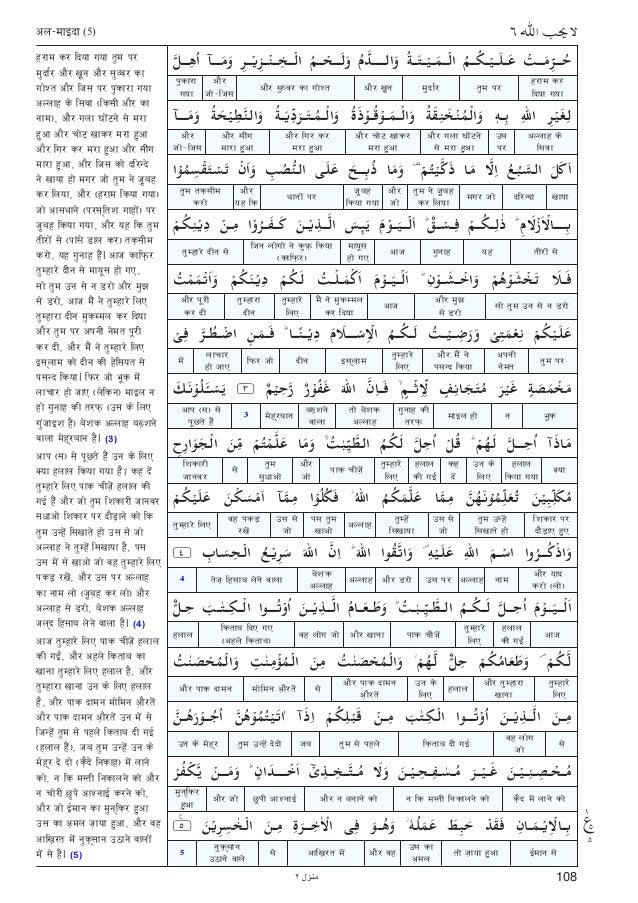 अल-माइदा (5)
لا يحب الله ٦
हराम कर दिया गया तुम पर
मुर्दार और ख़ून और सुव्वर का
गोश्त और जिस पर पुकारा गया
अल्लाह के सिवा (किसी और का
नाम), और गला घोंटने से मरा
हुआ और चोट खाकर मरा हुआ
और गिर कर मरा हुआ और सींग
मारा हुआ, और जिस को दरिन्दे
ने खाया हो मगर जो तुम ने ज़ुबह
कर लिया, और (हराम किया गया)
जो आसथाने (परसतिश गाहों) पर
ज़ुबह किया गया, और यह कि तुम
तीरों से (पांसे डाल कर) तक़सीम
करो, यह गुनाह है। आज काफ़िर
तुम्हारे दीन से मायूस हो गए,
सो तुम उन से न डरो और मुझ
से डरो, आज मैं ने तुम्हारे लिए
तुम्हारा दीन मुकम्मल कर दिया
और तुम पर अपनी नेमत पूरी
कर दी, और मैं ने तुम्हारे लिए
इस्लाम को दीन की हैसियत से
पसन्द किया। फिर जो भूक में
लाचार हो जाए (लेकिन) माइल न
हो गुनाह की तरफ़ (उस के लिए
गुंजाइश है) बेशक अल्लाह बख़्शने
वाला मेहरबान है। (3)
आप (स) से पूछते हैं उन के लिए
क्या हलाल किया गया है? कह दें
तुम्हारे लिए पाक चीज़ें हलाल की
गई हैं और जो तुम शिकारी जानवर
सधाओ शिकार पर दौड़ाने को कि
तुम उन्हें सिखाते हो उस से जो
अल्लाह ने तुम्हें सिखाया है, पस
उस में से खाओ जो वह तुम्हारे लिए
पकड़ रखें, और उस पर अल्लाह
का नाम लो (ज़ुबह कर लो) और
अल्लाह से डरो, बेशक अल्लाह
जल्द हिसाब लेने वाला है। (4)
आज तुम्हारे लिए पाक चीज़ें हलाल
की गईं, और अहले किताब का
खाना तुम्हारे लिए हलाल है, और
तुम्हारा खाना उन के लिए हलाल
है, और पाक दामन मोमिन औरतें
और पाक दामन औरतें उन में से
जिन्हें तुम से पहले किताब दी गई
(हलाल हैं), जब तुम उन्हें उन के
मेहर दे दो (क़ैदे निकाह) में लाने
को, न कि मस्ती निकालने को और
न चोरी छुपे आशनाई करने को,
और जो ईमान का मुन्किर हुआ
उस का अमल ज़ाया हुआ, और वह
आख़िरत में नुक़सान उठाने वालों
में से है। (5)
حُرِّمَتْ عَلَيْكُمُ الْمَيْتَةُ وَالدَّمُ وَلَحْمُ الْخِنْزِيْرِ وَمَآ اُهِلَّ
पुकारा गया | और जो-जिस | और सुव्वर का गोश्त | और ख़ून | मुर्दार | तुम पर | हराम कर दिया गया
لِغَيْرِ اللهِ بِهٖ وَالْمُنْخَنِقَةُ وَالْمَوْقُوْذَةُ وَالْمُتَرَدِّيَةُ وَالنَّطِيْحَةُ وَمَآ
और जो-जिस | और सींग मारा हुआ | और गिर कर मरा हुआ | और चोट खाकर मरा हुआ | और गला घोंटने से मरा हुआ | उस पर | अल्लाह के सिवा
اَكَلَ السَّبُعُ اِلَّا مَا ذَكَّيْتُمْ وَمَا ذُبِحَ عَلَى النُّصُبِ وَاَنْ تَسْتَقْسِمُوْا
तुम तक़सीम करो | और यह कि | थानों पर | ज़ुबह किया गया | और जो | तुम ने ज़ुबह कर लिया | मगर जो | दरिन्दा | खाया
بِالْاَزْلَامِ ذٰلِكُمْ فِسْقٌ اَلْيَوْمَ يَىِٕسَ الَّذِيْنَ كَفَرُوْا مِنْ دِيْنِكُمْ
तुम्हारे दीन से | जिन लोगों ने कुफ़्र किया (काफ़िर) | मायूस हो गए | आज | गुनाह | यह | तीरों से
فَلَا تَخْشَوْهُمْ وَاخْشَوْنِ اَلْيَوْمَ اَكْمَلْتُ لَكُمْ دِيْنَكُمْ وَاَتْمَمْتُ
और पूरी कर दी | तुम्हारा दीन | तुम्हारे लिए | मैं ने मुकम्मल कर दिया | आज | और मुझ से डरो | सो तुम उन से न डरो
عَلَيْكُمْ نِعْمَتِيْ وَرَضِيْتُ لَكُمُ الْاِسْلَامَ دِيْنًا فَمَنِ اضْطُرَّ فِيْ
में | लाचार हो जाए | फिर जो | दीन | इस्लाम | तुम्हारे लिए | और मैं ने पसन्द किया | अपनी नेमत | तुम पर
مَخْمَصَةٍ غَيْرَ مُتَجَانِفٍ لِّاِثْمٍ فَاِنَّ اللهَ غَفُوْرٌ رَّحِيْمٌ ٣ يَسْـَٔلُوْنَكَ
आप (स) से पूछते हैं | 3 | मेहरबान | बख़्शने वाला | तो बेशक अल्लाह | गुनाह की तरफ़ | माइल हो | न | भूक
مَاذَآ اُحِلَّ لَهُمْ قُلْ اُحِلَّ لَكُمُ الطَّيِّبٰتُ وَمَا عَلَّمْتُمْ مِّنَ الْجَوَارِحِ
शिकारी जानवर | से | तुम सुधाओ | और जो | पाक चीज़ें | तुम्हारे लिए | हलाल की गई | कह दें | उन के लिए | हलाल किया गया | क्या
مُكَلِّبِيْنَ تُعَلِّمُوْنَهُنَّ مِمَّا عَلَّمَكُمُ اللهُ فَكُلُوْا مِمَّآ اَمْسَكْنَ عَلَيْكُمْ
तुम्हारे लिए | वह पकड़ रखें | उस से जो | पस तुम खाओ | अल्लाह | तुम्हें सिखाया | उस से जो | तुम उन्हें सिखाते हो | शिकार पर दौड़ाए हुए
وَاذْكُرُوا اسْمَ اللهِ عَلَيْهِ وَاتَّقُوا اللهَ اِنَّ اللهَ سَرِيْعُ الْحِسَابِ ٤
4 | तेज़ हिसाब लेने वाला | बेशक अल्लाह | अल्लाह | और डरो | उस पर | अल्लाह | नाम | और याद करो (लो)
اَلْيَوْمَ اُحِلَّ لَكُمُ الطَّيِّبٰتُ وَطَعَامُ الَّذِيْنَ اُوْتُوا الْكِتٰبَ حِلٌّ
हलाल | किताब दिए गए (अहले किताब) | वह लोग जो | और खाना | पाक चीज़ें | तुम्हारे लिए | हलाल की गईं | आज
لَّكُمْ وَطَعَامُكُمْ حِلٌّ لَّهُمْ وَالْمُحْصَنٰتُ مِنَ الْمُؤْمِنٰتِ وَالْمُحْصَنٰتُ
और पाक दामन औरतें | मोमिन औरतें | से | और पाक दामन औरतें | उन के लिए | हलाल | और तुम्हारा खाना | तुम्हारे लिए
مِنَ الَّذِيْنَ اُوْتُوا الْكِتٰبَ مِنْ قَبْلِكُمْ اِذَآ اٰتَيْتُمُوْهُنَّ اُجُوْرَهُنَّ
उन के मेहर | तुम उन्हें देदो | जब | तुम से पहले | किताब दी गई | वह लोग जो | से
مُحْصِنِيْنَ غَيْرَ مُسٰفِحِيْنَ وَلَا مُتَّخِذِيْٓ اَخْدَانٍ وَمَنْ يَّكْفُرْ
मुन्किर हुआ | और जो | छुपी आशनाई | और न बनाने को | न कि मस्ती निकालने को | क़ैद में लाने को
بِالْاِيْمَانِ فَقَدْ حَبِطَ عَمَلُهٗ وَهُوَ فِي الْاٰخِرَةِ مِنَ الْخٰسِرِيْنَ ٥
5 | नुक़सान उठाने वाले | से | आख़िरत में | और वह | उस का अमल | तो ज़ाया हुआ | ईमान से
منزل ٢
108